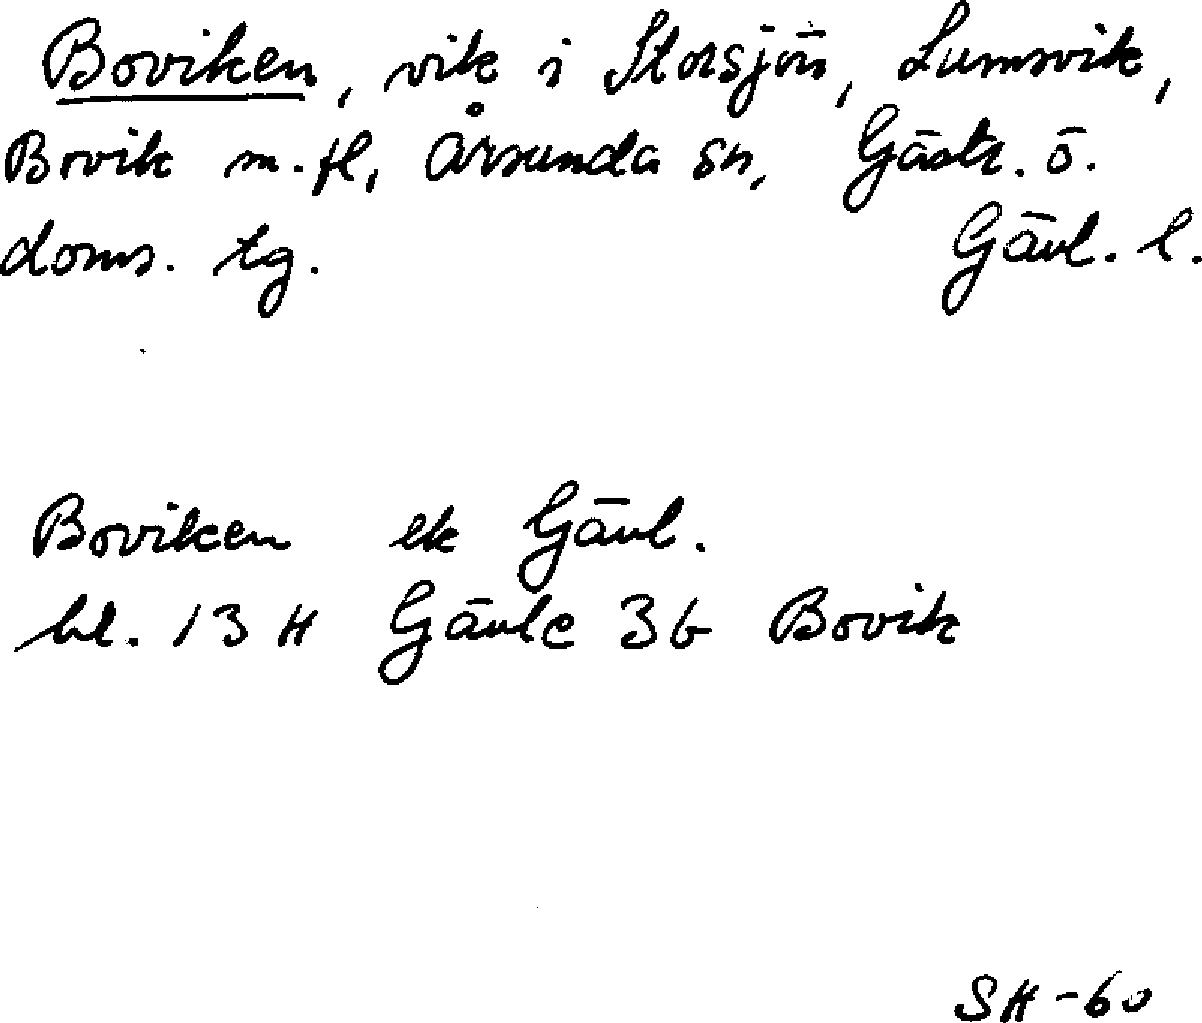 Boviken, vik i Storsjön, Lumsvik,
Bovik m. fl, Årsunda sn, Gästr. ö.
doms. tg. Gävl. l.
Boviken ek Gävl.
bl. 13 H Gävle 3b Bovik
SH-60